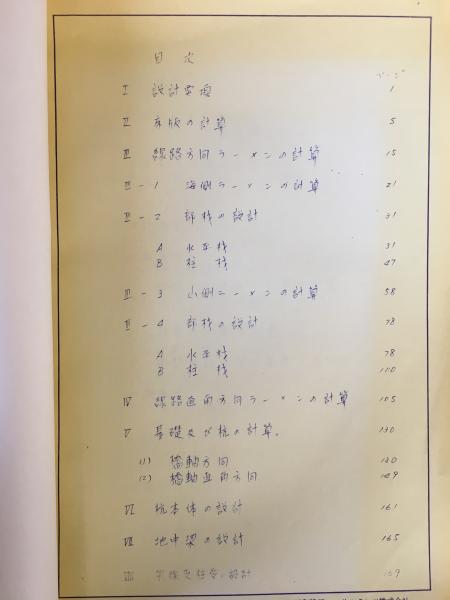 目次
ページ
I 設計要項 1
II 床版の計算 5
III 線路方向ラーメンの計算 15
III-1 海側ラーメンの計算 21
III-2 部材の設計 31
A 水平材 31
B 柱材 47
III-3 山側ラーメンの計算 58
III-4 部材の設計 78
A 水平材 78
B 柱材 100
IV 線路直角方向ラーメンの計算 105
V 基礎及び杭の計算. 130
(1) 橋軸方向 130
(2) 橋軸直角方向 149
VI 杭本体の設計 161
VII 地中梁の設計 165
VIII の設計 169
株式会社